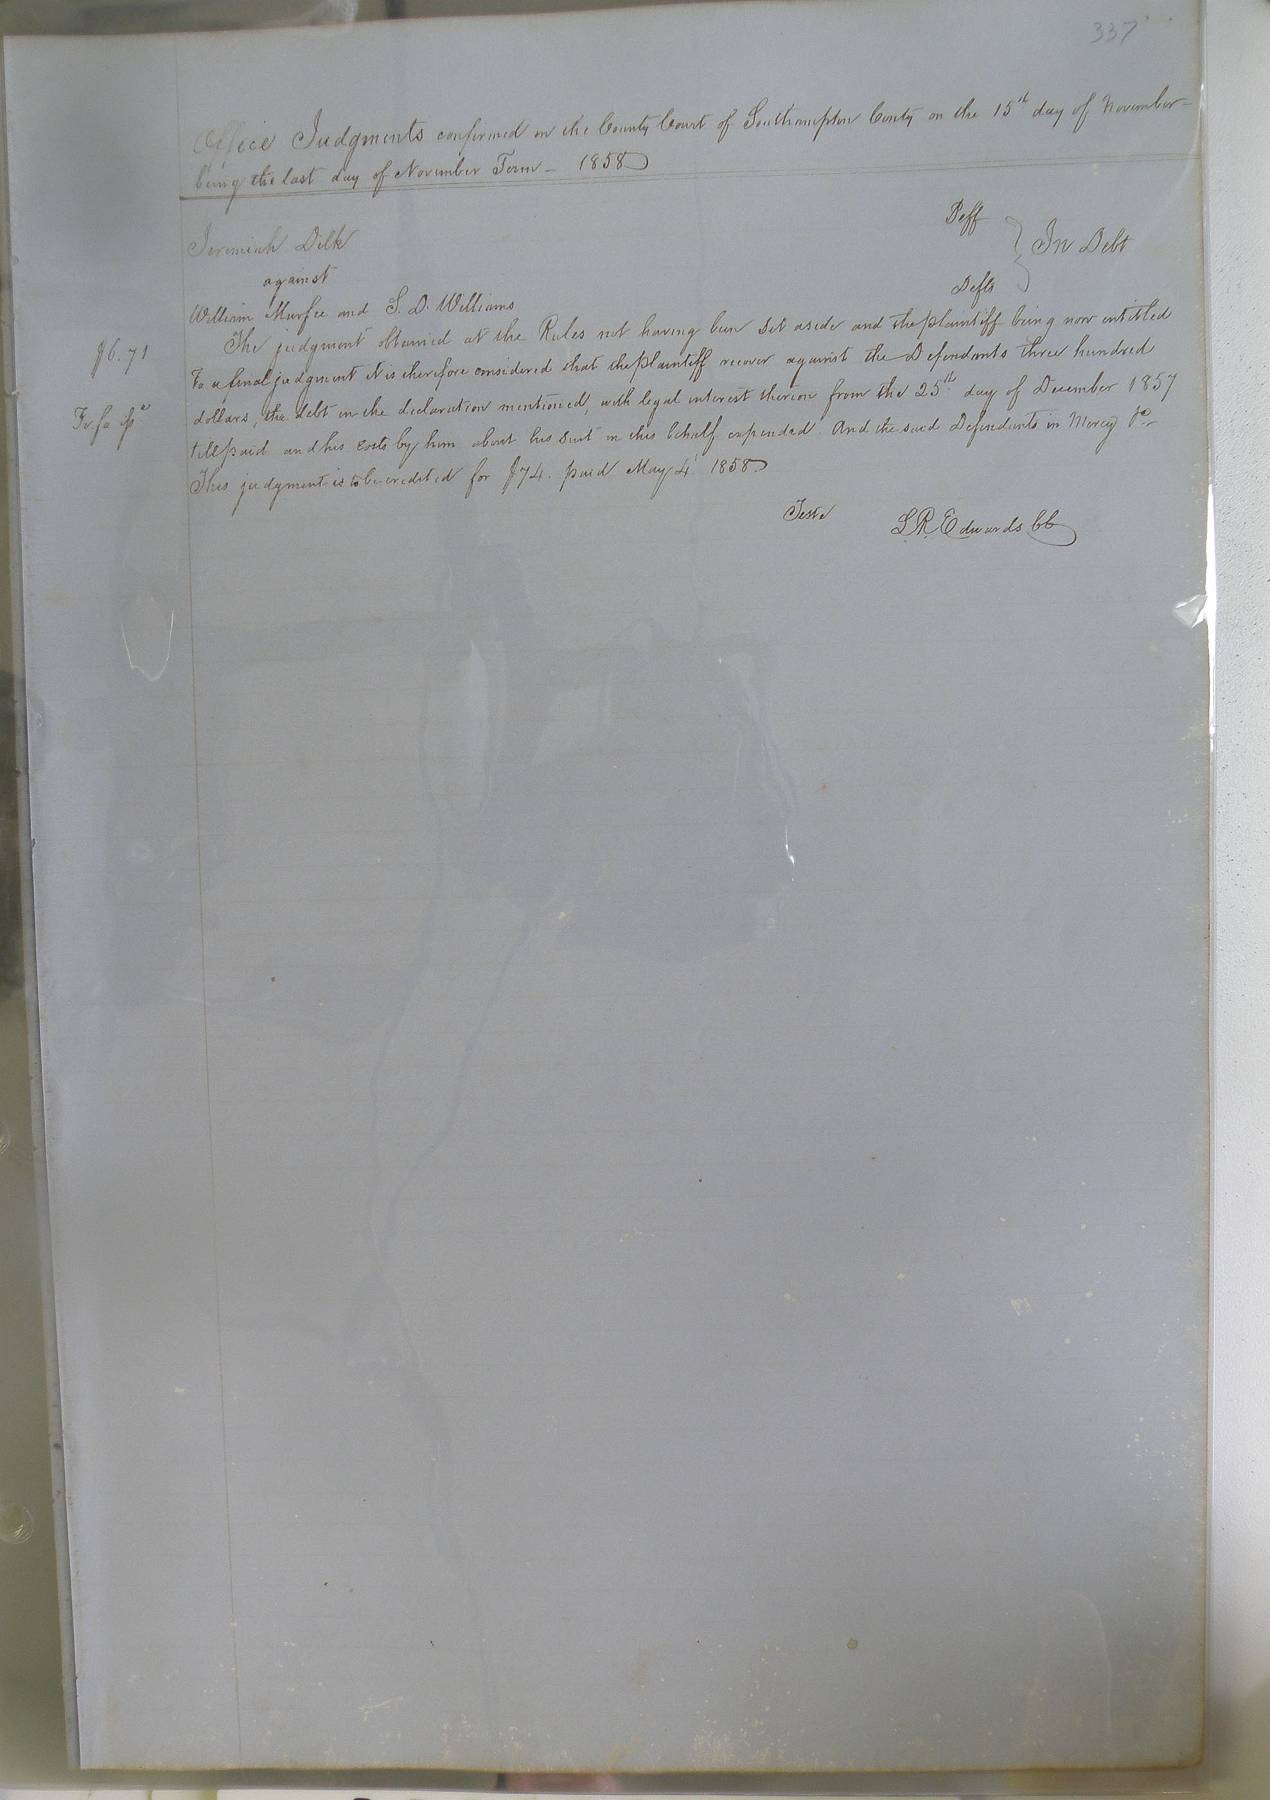 337
Office Judgments confirmed in the County Court of Southampton County on the 15th day of November
being the last day of November Term - 1858
Jeremiah Dilk Peff
against } In Debt
William Murfee and S. D. Williams Defts
The judgment obtained at the Rules not having been set aside and the plaintiff being now entitled
$6.71 To a final judgment it is therefore considered that the plaintiff recover against the Defendants three hundred
Fi fa dollars, the debt in the declaration mentioned, with legal interest thereon from the 25th day of December 1857
till paid and his costs by him about his suit in this behalf expended. And the said Defendants in Mercy &c.
This judgment is to be credited for $74. paid May 4 1858.
Teste L. R. Edwards CC